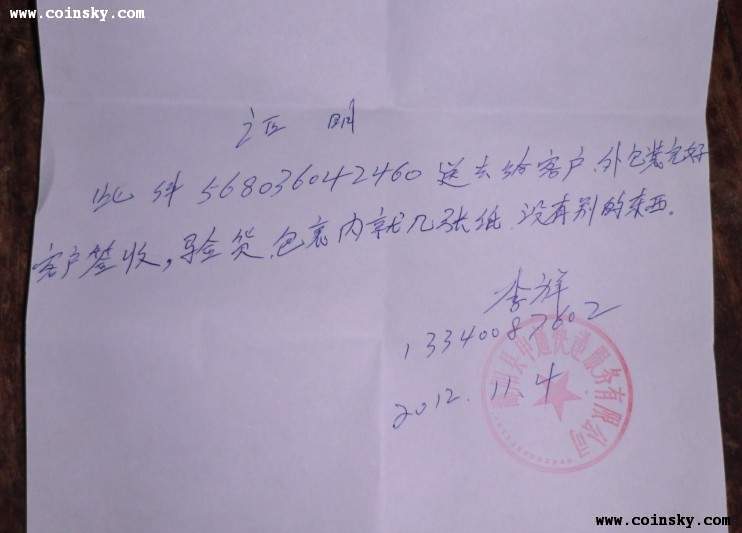 www.coinsky.com
www.coinsky.com
证 明
此件 568036042460 送去给客户.外包装完好
客户签收,验货.包裹内就几张纸.没有别的东西.
李祥
13340087602
2012.11.4
县申通快递服务有限公司
www.coinsky.com